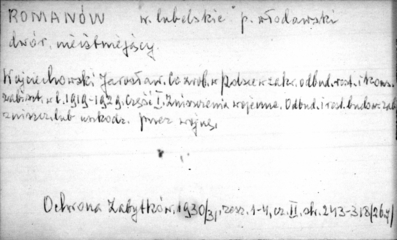 ROMANÓW w. lubelskie p. włodawski
dwór, nieistniejący.
Wojciechowski Jarosław. Co zrob. w Polsce w zakr. odbud. rest. i konserw.
zabytk. w l. 1919-1929. Część I. Zniszczenia wojenne. Odbud. i rest. budow. zab.
zniszcz. lub uszkodz. przez wojnę,
Ochrona Zabytków, 1930/31, zesz. 1-4, cz. II. str. 243-318/264/